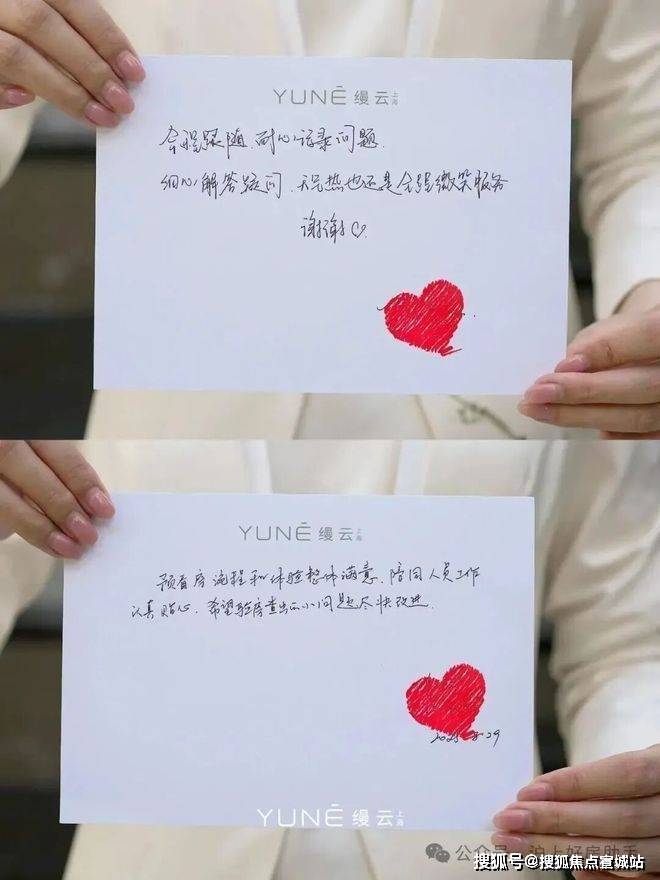 YUNÉ 缦云 上海
全程跟随,耐心记录问题.
细心解答疑问、天气热也还是全程微笑服务
谢谢♡.
YUNÉ 缦云 上海
预看房流程和体验整体满意、陪同人员工作
认真贴心.希望验房查出的小问题尽快改进.
YUNÉ 缦云 上海
公众号 · 沪上好房助手
搜狐号@搜狐焦点宣城站